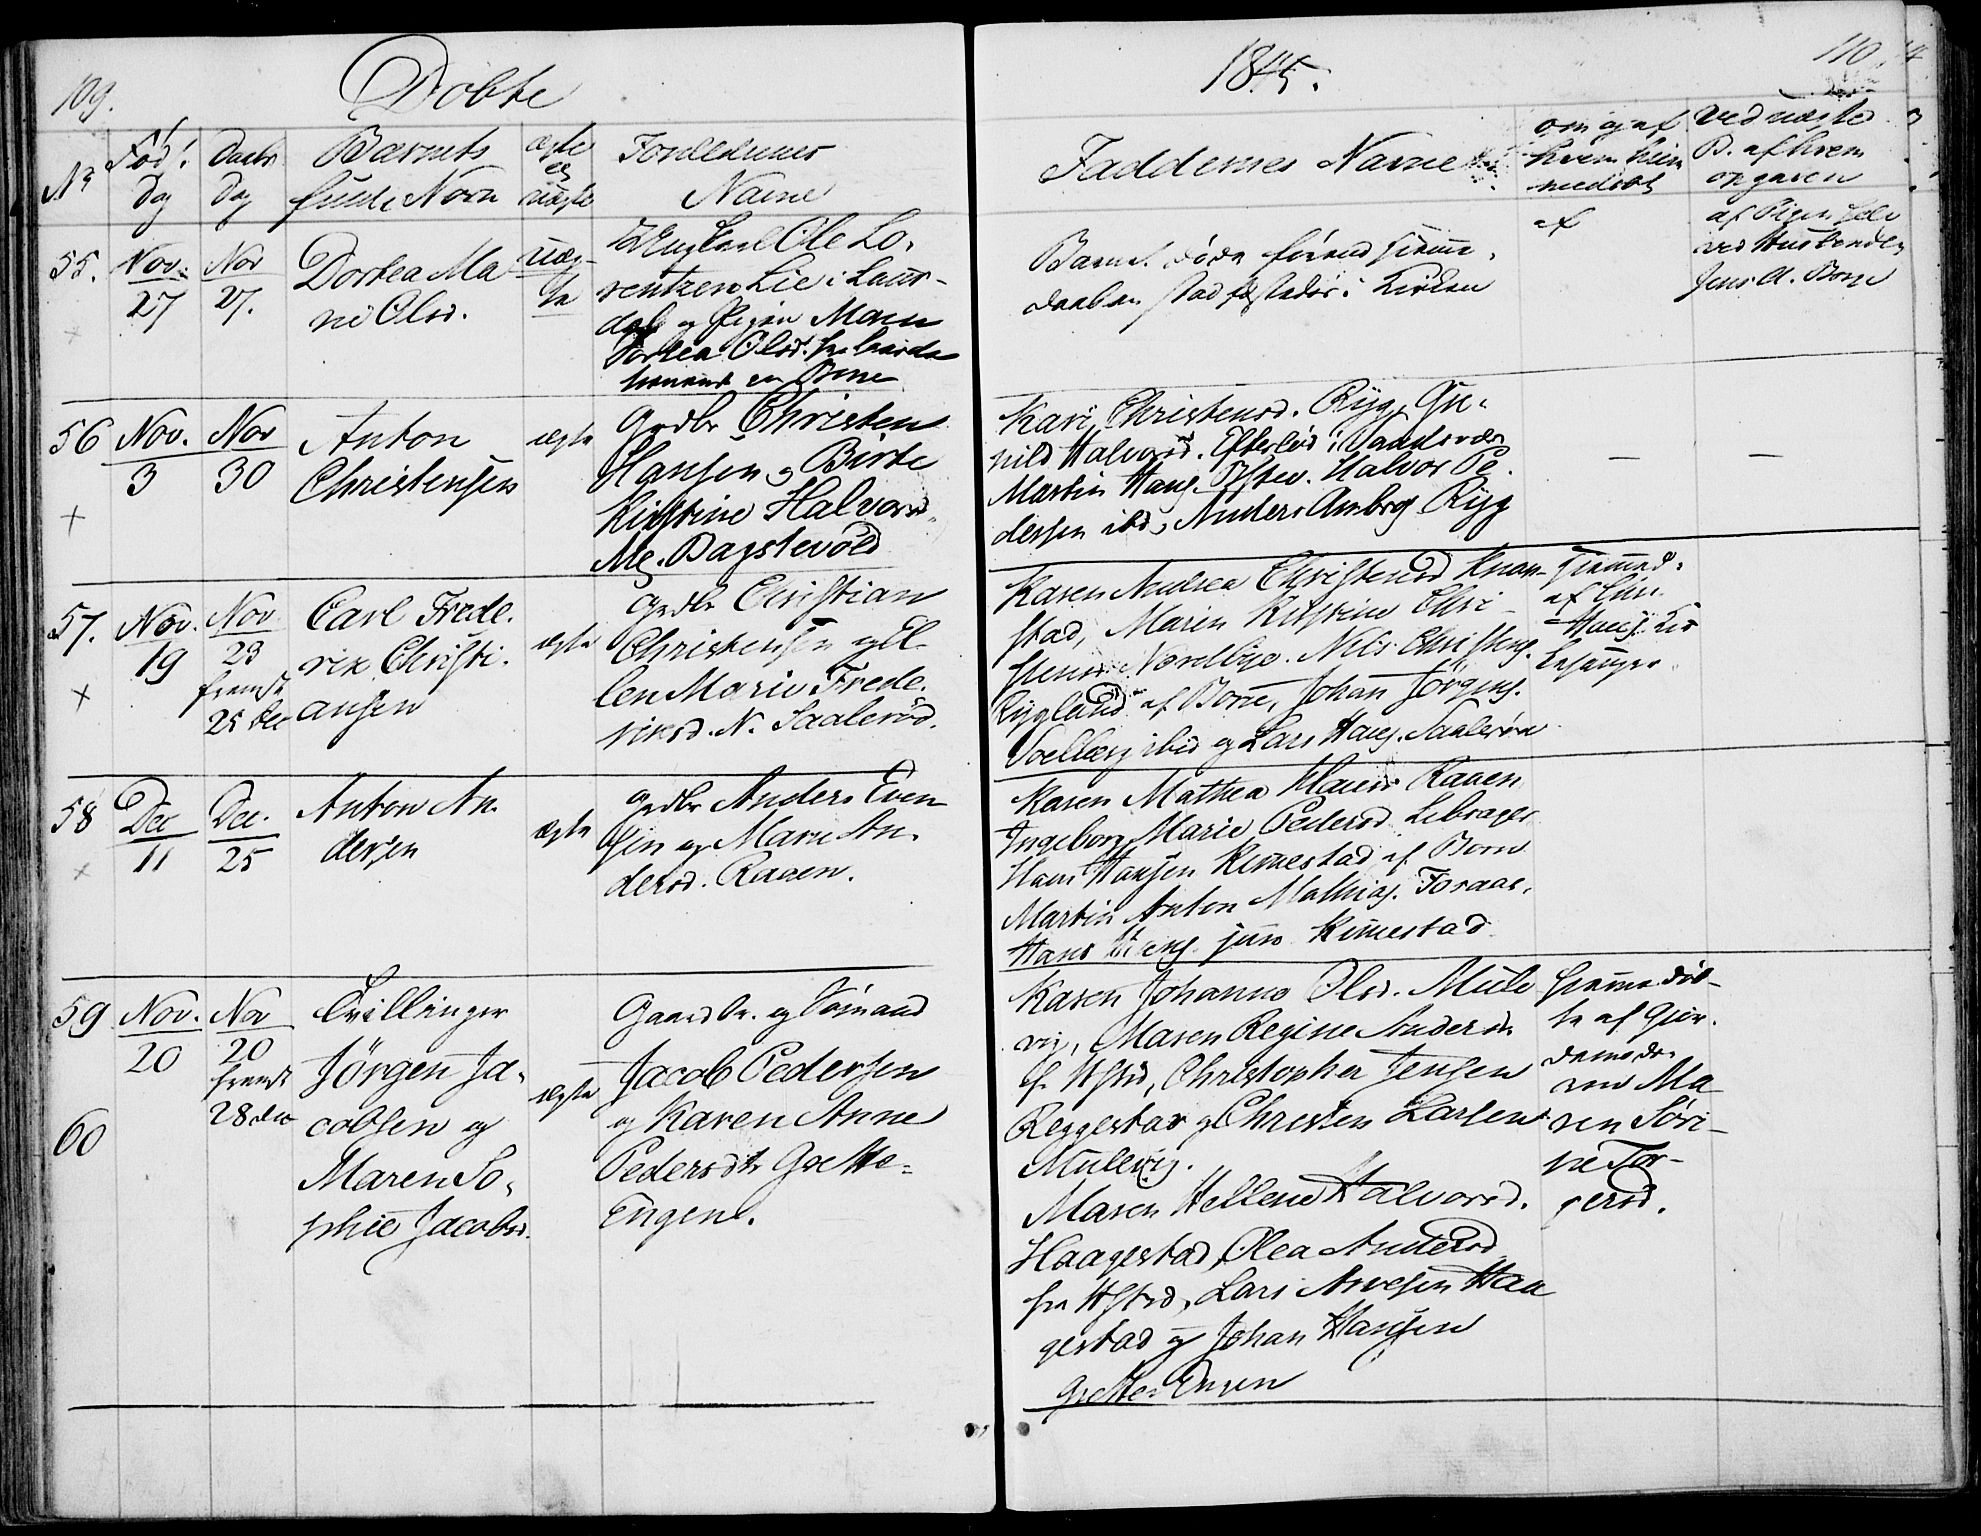 109.
Döbte
1845.
110
No
Född
Dag
Daabs
Dag
Barnets
fulde Navn
ægte
el
uægte
Forældrenes
Navne
Faddernes Navne
om og af
hvem hjem
medøbt
ved uægte
B. af hvem
opgaven
55.
Nov.
27
Nov
27.
Dortea Ma
rie Olsd.
uæg-
te
Ungkarl Ole Lo-
rentzen Lie i Laur-
dal og Pigen Maren
Dortea Olsd. fra
en Borre
Barnet døde førend hjemme-
daaben stadfæstedes i Kirken
af
af Pigen selv
ved Husbonden
Jens A. Borre
56
Nov.
3
Nov
30
Anton
Christensen
ægte
Grdbr Christen
Hansen og Birte
Kirstine Halvorsd.
Mg. Bagstevold
Kari Christensd. Ryg, Gu-
nild Halvorsd. Efterløs i Sandsvær
Martin Hans. Ifsten. Halvor Pe
dersen ibd, Anders Ambrg Ryg
–
–
57.
Nov.
19
Nov
23
fremst
25 Dec
Carl Frede-
rik Christi-
ansen
ægte
Grdbr Christian
Christensen og El-
len Marie Frede-
riksd. N. Saalerød.
Karen Andrea Christensd Knap-
stad, Maren Kirstine Chri-
stensd Nordbye. Nils Christens.
Rygland af Borre, Johan Jörgens.
Solberg ibid og Lars Hans. Saalerön
Hjemmed.
af
Hans. Kir
kesanger
58
Dec
11
Dec.
25
Anton An-
dersen
ægte
Grdbr Anders Even
sen og Maren An-
dersd. Raaen.
Karen Mathea Klausd. Raaen
Ingeborg Marie Pedersd Lebrager
Hans Hansen Rimestad af Borre
Martin Anton Mathias. Toraas.
Hans Hans. jun Rimestad
59
Nov.
20
Nov
20
fremst
28 dec
60
Tvillinger
Jörgen Ja-
cobsen og
Maren So-
phie Jacobsd.
ægte
Gaardbr. og Sömand
Jacob Pedersen
og Karen Anne
Pedersdtr Grette-
Engen.
Karen Johanne Olsd. Mule
vig, Maren Regine Andersd.
fr Hstd, Christopher Jensen
Reggestad og Christen Larsen
Mulevig.
Maren Hellene Halvorsd.
Haagestad, Olea Andersd
fra Hstd, Lars Arvesen Haa
gestad og Johan Hansen
Grette Engen
hjemmedöb-
te af Gjor-
demode-
ren Ma
ren Søri-
ne Tor-
gersd.